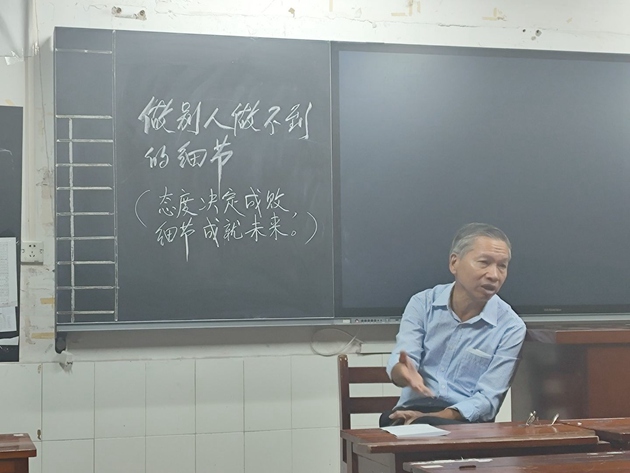 做别人做不到
的细节
(态度决定成败，
细节成就未来。)